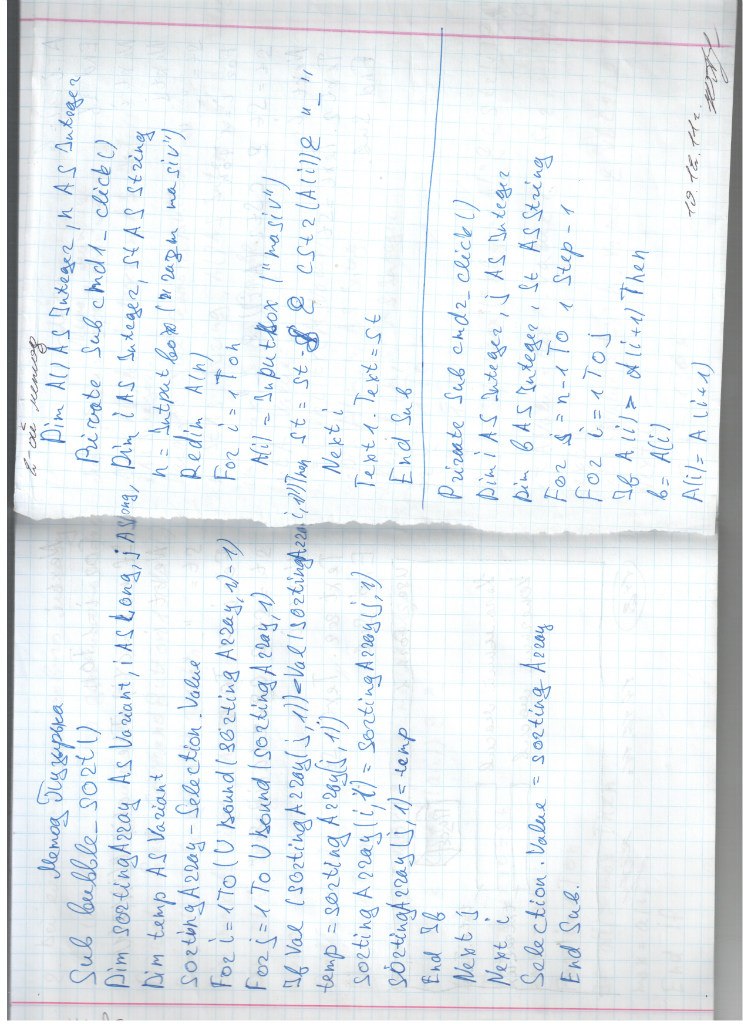 Метод Пузырька
Sub bubble_sort()
Dim sortingArray AS Variant, i AS Long, j AS Long,
Dim temp AS Variant
sortingArray - Selection.Value
For i = 1 To (UBound(sortingArray, 1) - 1)
For j = 1 To UBound(sortingArray, 1)
If Val (sortingArray(j, 1)) < Val(sortingArray(i, 1)) Then
temp = sorting Array(j, 1))
sorting Array (i, 1) = sortingArray(j, 1)
sortingArray(j, 1) = temp
End If
Next j
Next i
Selection.Value = sorting Array
End Sub.
2-ой метод
Dim A() AS Integer, n AS Integer
Private Sub cmd1_click()
Dim i AS Integer, st AS String
n = Intputbox ("razm masiv")
Redim A(n)
For i = 1 To n
A(i) = InputBox ("masiv")
st = st & cstr(A(i)) & "_"
Next i
Text1.Text = st
End Sub
Private Sub cmd2_click()
Dim i AS Integer, j AS Integer
Dim b AS Integer, st AS String
For j = n-1 To 1 Step -1
For i = 1 To j
If A(i) > A(i+1) Then
b = A(i)
A(i) = A(i+1)
19.12.11г.